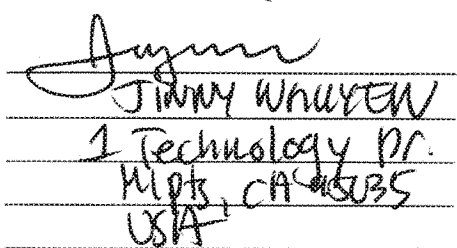 JINNY NGUYEN
1 Technology Dr.
Mlpts, CA 95035
USA